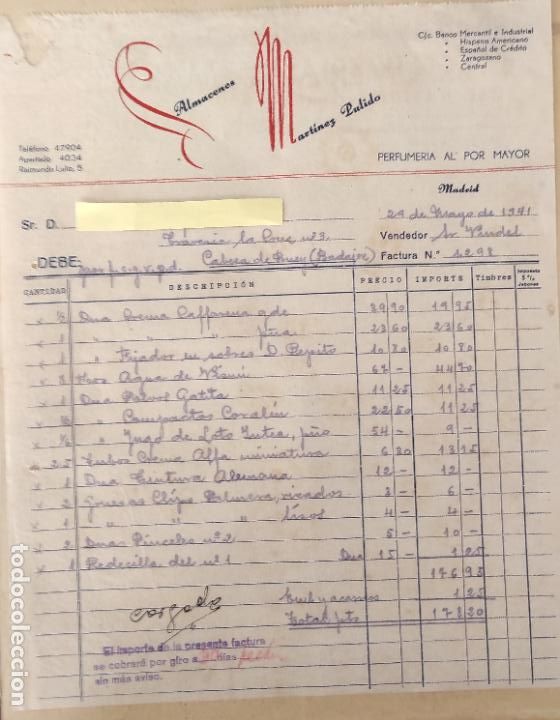 C/c. Banco Mercantil e Industrial
• Hispano Americano
• Español de Crédito
• Zaragozano
• Central
Almacenes Martínez Pulido
Teléfono 47904
Apartado 4034
Raimundo Lulio, 5
PERFUMERIA AL POR MAYOR
Madrid
29 de Mayo de 1941
Sr. D.
Travesía la Cruz nº 3.
Vendedor Sr.
DEBE: Cabeza de Buey (Badajoz) Factura N.º 1298
CANTIDAD DESCRIPCIÓN PRECIO IMPORTE Timbres Impuesto 5 % Jabones
x ½ Dna Crema Caffarena gde 39 90 19 95
x 1 " " " pña 23 60 23 60
x 1 " Fijador en sobres D. Pepito 10 80 10 80
x 8 Agua de 67 - 44 70
x 1 Dna Gatta 11 25 11 25
x ½ " Compactos Coralín 22 50 11 25
x " Jugo de Loto Intea, pño 54 - 9 -
25 Tubos Crema Alfa miniatura 13 15
x 1 Dna Tintura Alemana 12 - 12 -
x 2 3 - 6 -
x 1 " " " lisos 4 - 4 -
x 2 Dnas Pinceles nº 2 5 - 10 -
x 1 Redecilla del nº 1 Dna 15 - 1 25
176 95
1 25
Total pts 178 20
cargado
El importe de la presente factura
se cobrará por giro a días
sin más aviso.
todocoleccion